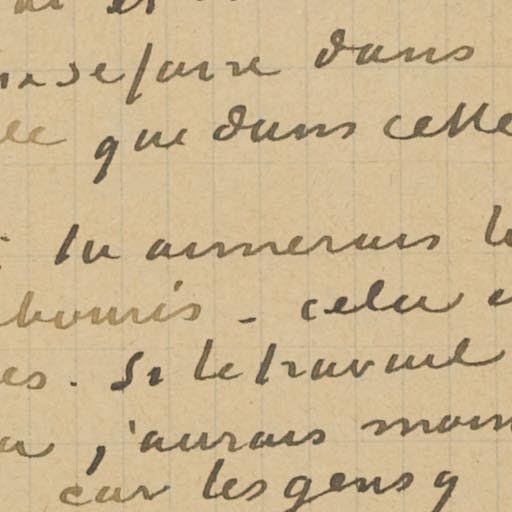 se faire dans
que dans cette
tu aimerais
celui
es. Si le travail
j'aurais
car les gens q